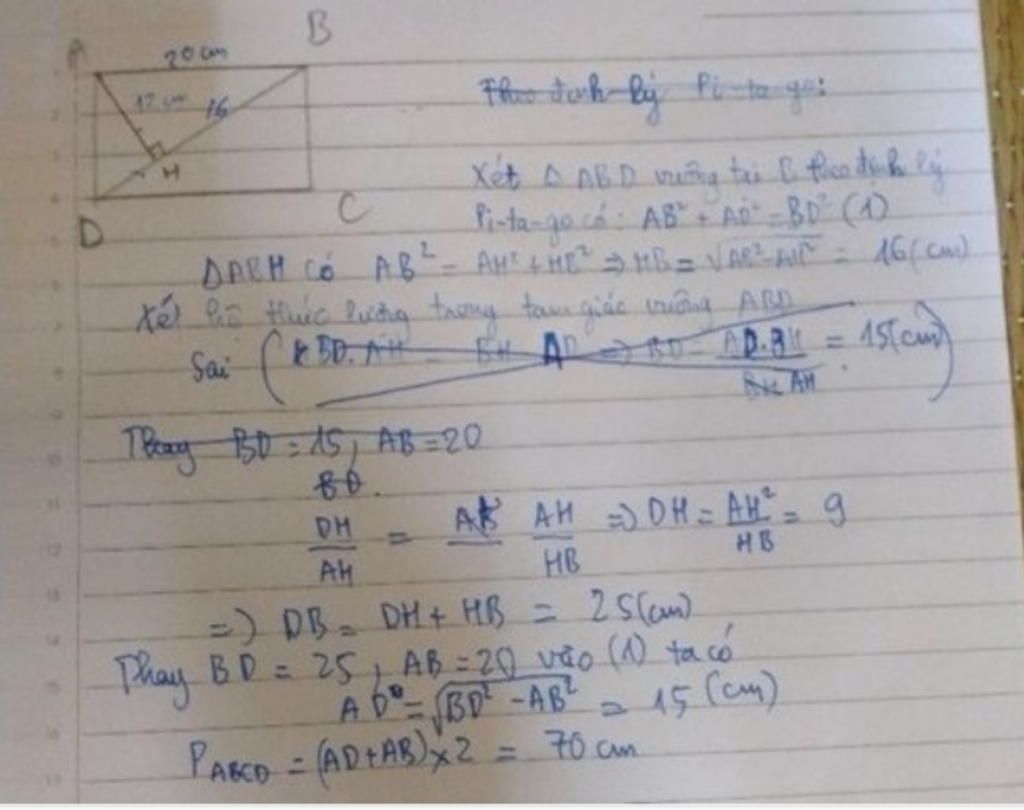 A
20cm
B
12cm
16
H
D
C
Theo định lý Pi-ta-go:
Xét Δ ABD vuông tại B theo định lý
Pi-ta-go có: AB² + AD² = BD² (1)
ΔABH có AB² = AH² + HB² ⇒ HB = √AB²-AH² = 16(cm)
Xét hệ thức lượng trong tam giác vuông ABD
Sai ( BD.AH = BH AD ⇒ BD = AD.BH / AH = 15(cm) )
Thay BD = 15, AB = 20
BD.
DH/AH = AB AH/HB ⇒ DH = AH²/HB = 9
=) DB = DH + HB = 25(cm)
Thay BD = 25, AB = 20 vào (1) ta có
AD = √BD² - AB² = 15 (cm)
P ABCD = (AD+AB)×2 = 70 cm